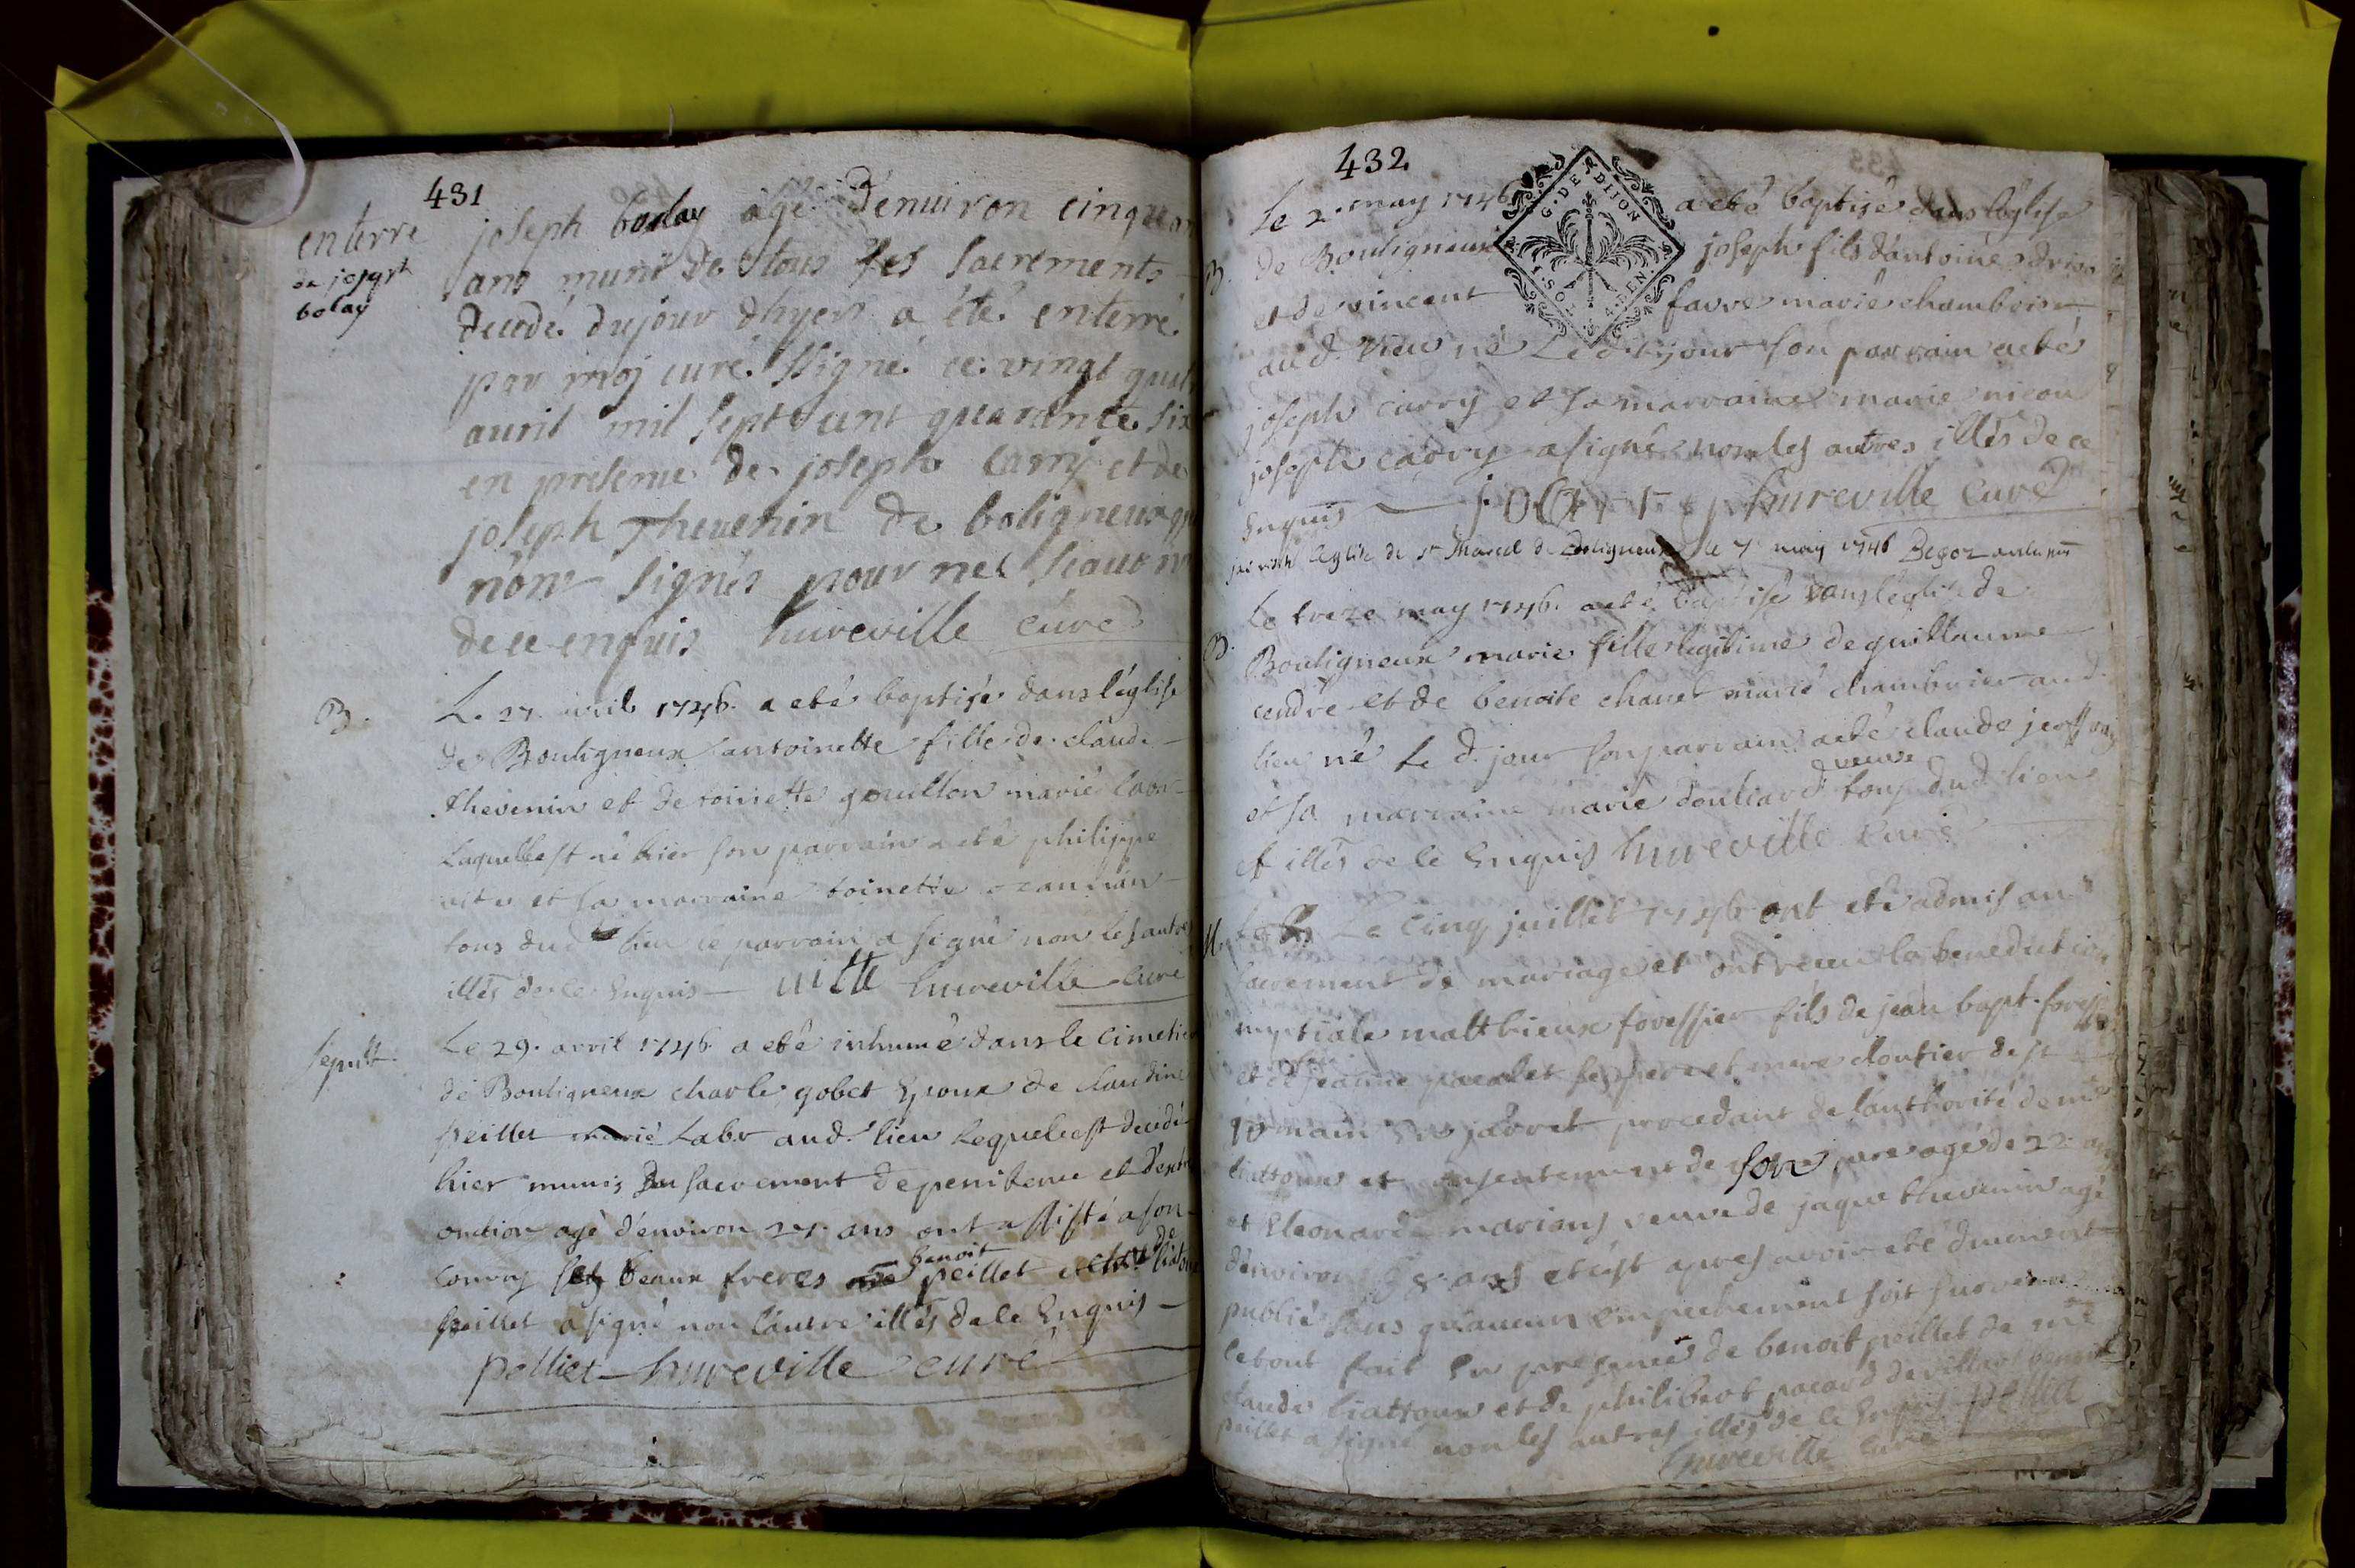 431
enterre
de joseph
bolay
joseph bolay agé d'enuiron cinquan
ans muni de tous ses sacrements
decedé dujour d'hyer a été enterré
par moj curé ssigné ce vingt
auril mil sept cent quarante six
en presence de joseph carry et de
joseph Thevenin de boligneux
n'ont signés pour ne sçauoir
de ce enquis hureville curé
B.
Le 27. avril 1746. a eté baptisé dans l'église
de Bouligneux antoinette fille de claude
thevenin et de toinette goullon marié labr
laquelle est né hier son parrain a eté philippe
vite et sa marraine toinette
tous dud lieu le parrain a signé non les autres
illés de ce Enquis — uitte hureville curé
sepult.
Le 29. avril 1746 a eté inhumé dans le cimetier
de Bouligneux charle gobet Epoux de claudine
peillet marié Labr aud. lieu lequel est decedé
hier munis du sacrement de penitence et d'extr
onction agé d'environ 27. ans ont assisté a son
convoy ses beaux freres benoit peillet et
peillet a signé non l'autre illés de ce Enquis —
pelliet hureville curé
432
Le 2. may 1746 a eté baptisé dans l'église
G. DE DIJON
SOL 4. DEN.
B. de Bouligneux joseph fils d'antoine
et de vincent favre marié chambrier
aud. lieu né Led. jour son parrain a eté
joseph carry et sa marraine marie nicou
joseph carry a signé non les autres illés de ce
Enquis — hureville curé
l'eglise de st Marcel de Boligneux le 7 may 1746 Begoz
B.
Le treze may 1746. a eté baptisé dans l'eglise de
Bouligneux marie fille legitime de guillaume
cendre et de benoite chanel marié chambrier aud.
lieu né le d. jour son parrain a eté claude jeoffray
et sa marraine marie douliard veuve tous dud lieu
et illés de ce Enquis hureville curé
M.
Le cinq juillet 1746 ont eté admis au
sacrement de mariage et ont receu la benediction
nuptiale matthieux forestier fils de jean bapt. forest
et de jeanne pacalet ses pere et mere cloutier de st
germain En jarret procedant de l'authorité de me
liattoux et consentement de son pere agé de 22 ans
et Eleonarde marions veuve de jaque thevenin agé
d'environ 38. ans et c'est apres avoir eté duement
publié sans qu'aucun Empechement soit survenu
le tout fait En presence de benoit peillet de me
claude liattoux et de philibert pacard de villars benoit
peillet a signé non les autres illés de ce Enquis pelliet
hureville curé